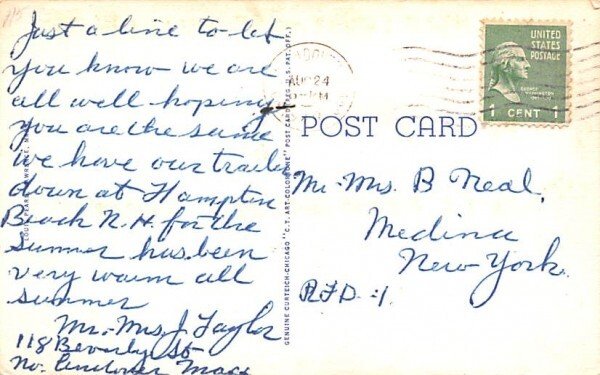 Just a line to let
you know we are
all well hoping
you are the same
we have our trailer
down at Hampton
Beach N.H. for the
summer has been
very warm all
summer
Mr. Mrs. J Taylor
118 Beverly St
No. Andover Mass
GENUINE CURTEICH-CHICAGO "C.T. ART-COLORTONE" POST CARD (REG. U.S. PAT. OFF.)
POST CARD
AUG 24
UNITED
STATES
POSTAGE
1 CENT 1
Mr. Mrs. B Neal.
Medina
New York.
R.F.D. 1